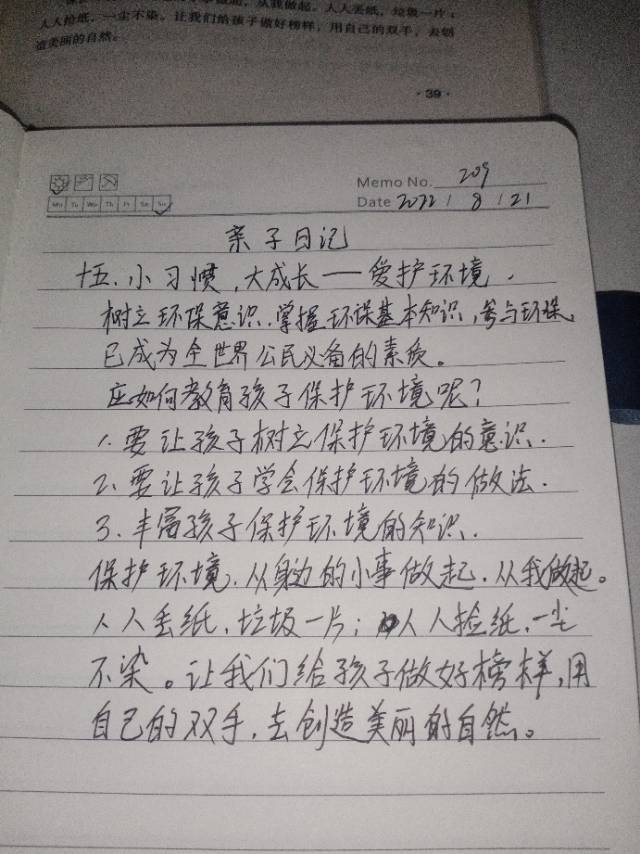 从我做起。人人丢纸，垃圾一片；
人人捡纸，一尘不染。让我们给孩子做好榜样，用自己的双手，去创
造美丽的自然。
·39·
Memo No. 209
Mo Tu We Th Fr Sa Su
Date 2022 / 8 / 21
亲子日记
十五、小习惯，大成长——爱护环境．
树立环保意识，掌握环保基本知识，参与环保，
已成为全世界公民必备的素质。
应如何教育孩子保护环境呢？
1、要让孩子树立保护环境的意识．
2、要让孩子学会保护环境的做法．
3、丰富孩子保护环境的知识．
保护环境，从身边的小事做起，从我做起。
人人丢纸，垃圾一片；人人捡纸，一尘
不染。让我们给孩子做好榜样，用
自己的双手，去创造美丽的自然。